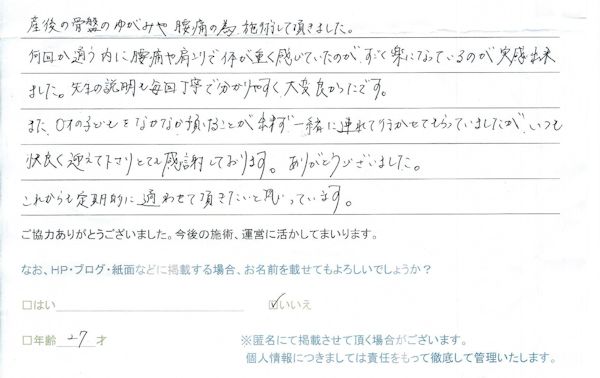 産後の骨盤のゆがみや腰痛の為、施術して頂きました。
何回か通う内に腰痛や肩こりで体が重く感じていたのが、すごく楽になっているのが実感出来
ました。先生の説明も毎回丁寧で分かりやすく大変良かったです。
また、0才の子どもをなかなか預けることが出来ず一緒に連れて行かせてもらっていましたが、いつも
快良く迎えて下さりとても感謝しております。ありがとうございました。
これからも定期的に通わせて頂きたいと思っています。
ご協力ありがとうございました。今後の施術、運営に活かしてまいります。
なお、HP・ブログ・紙面などに掲載する場合、お名前を載せてもよろしいでしょうか？
□はい ☑いいえ
□年齢 27 才 ※匿名にて掲載させて頂く場合がございます。
個人情報につきましては責任をもって徹底して管理いたします。